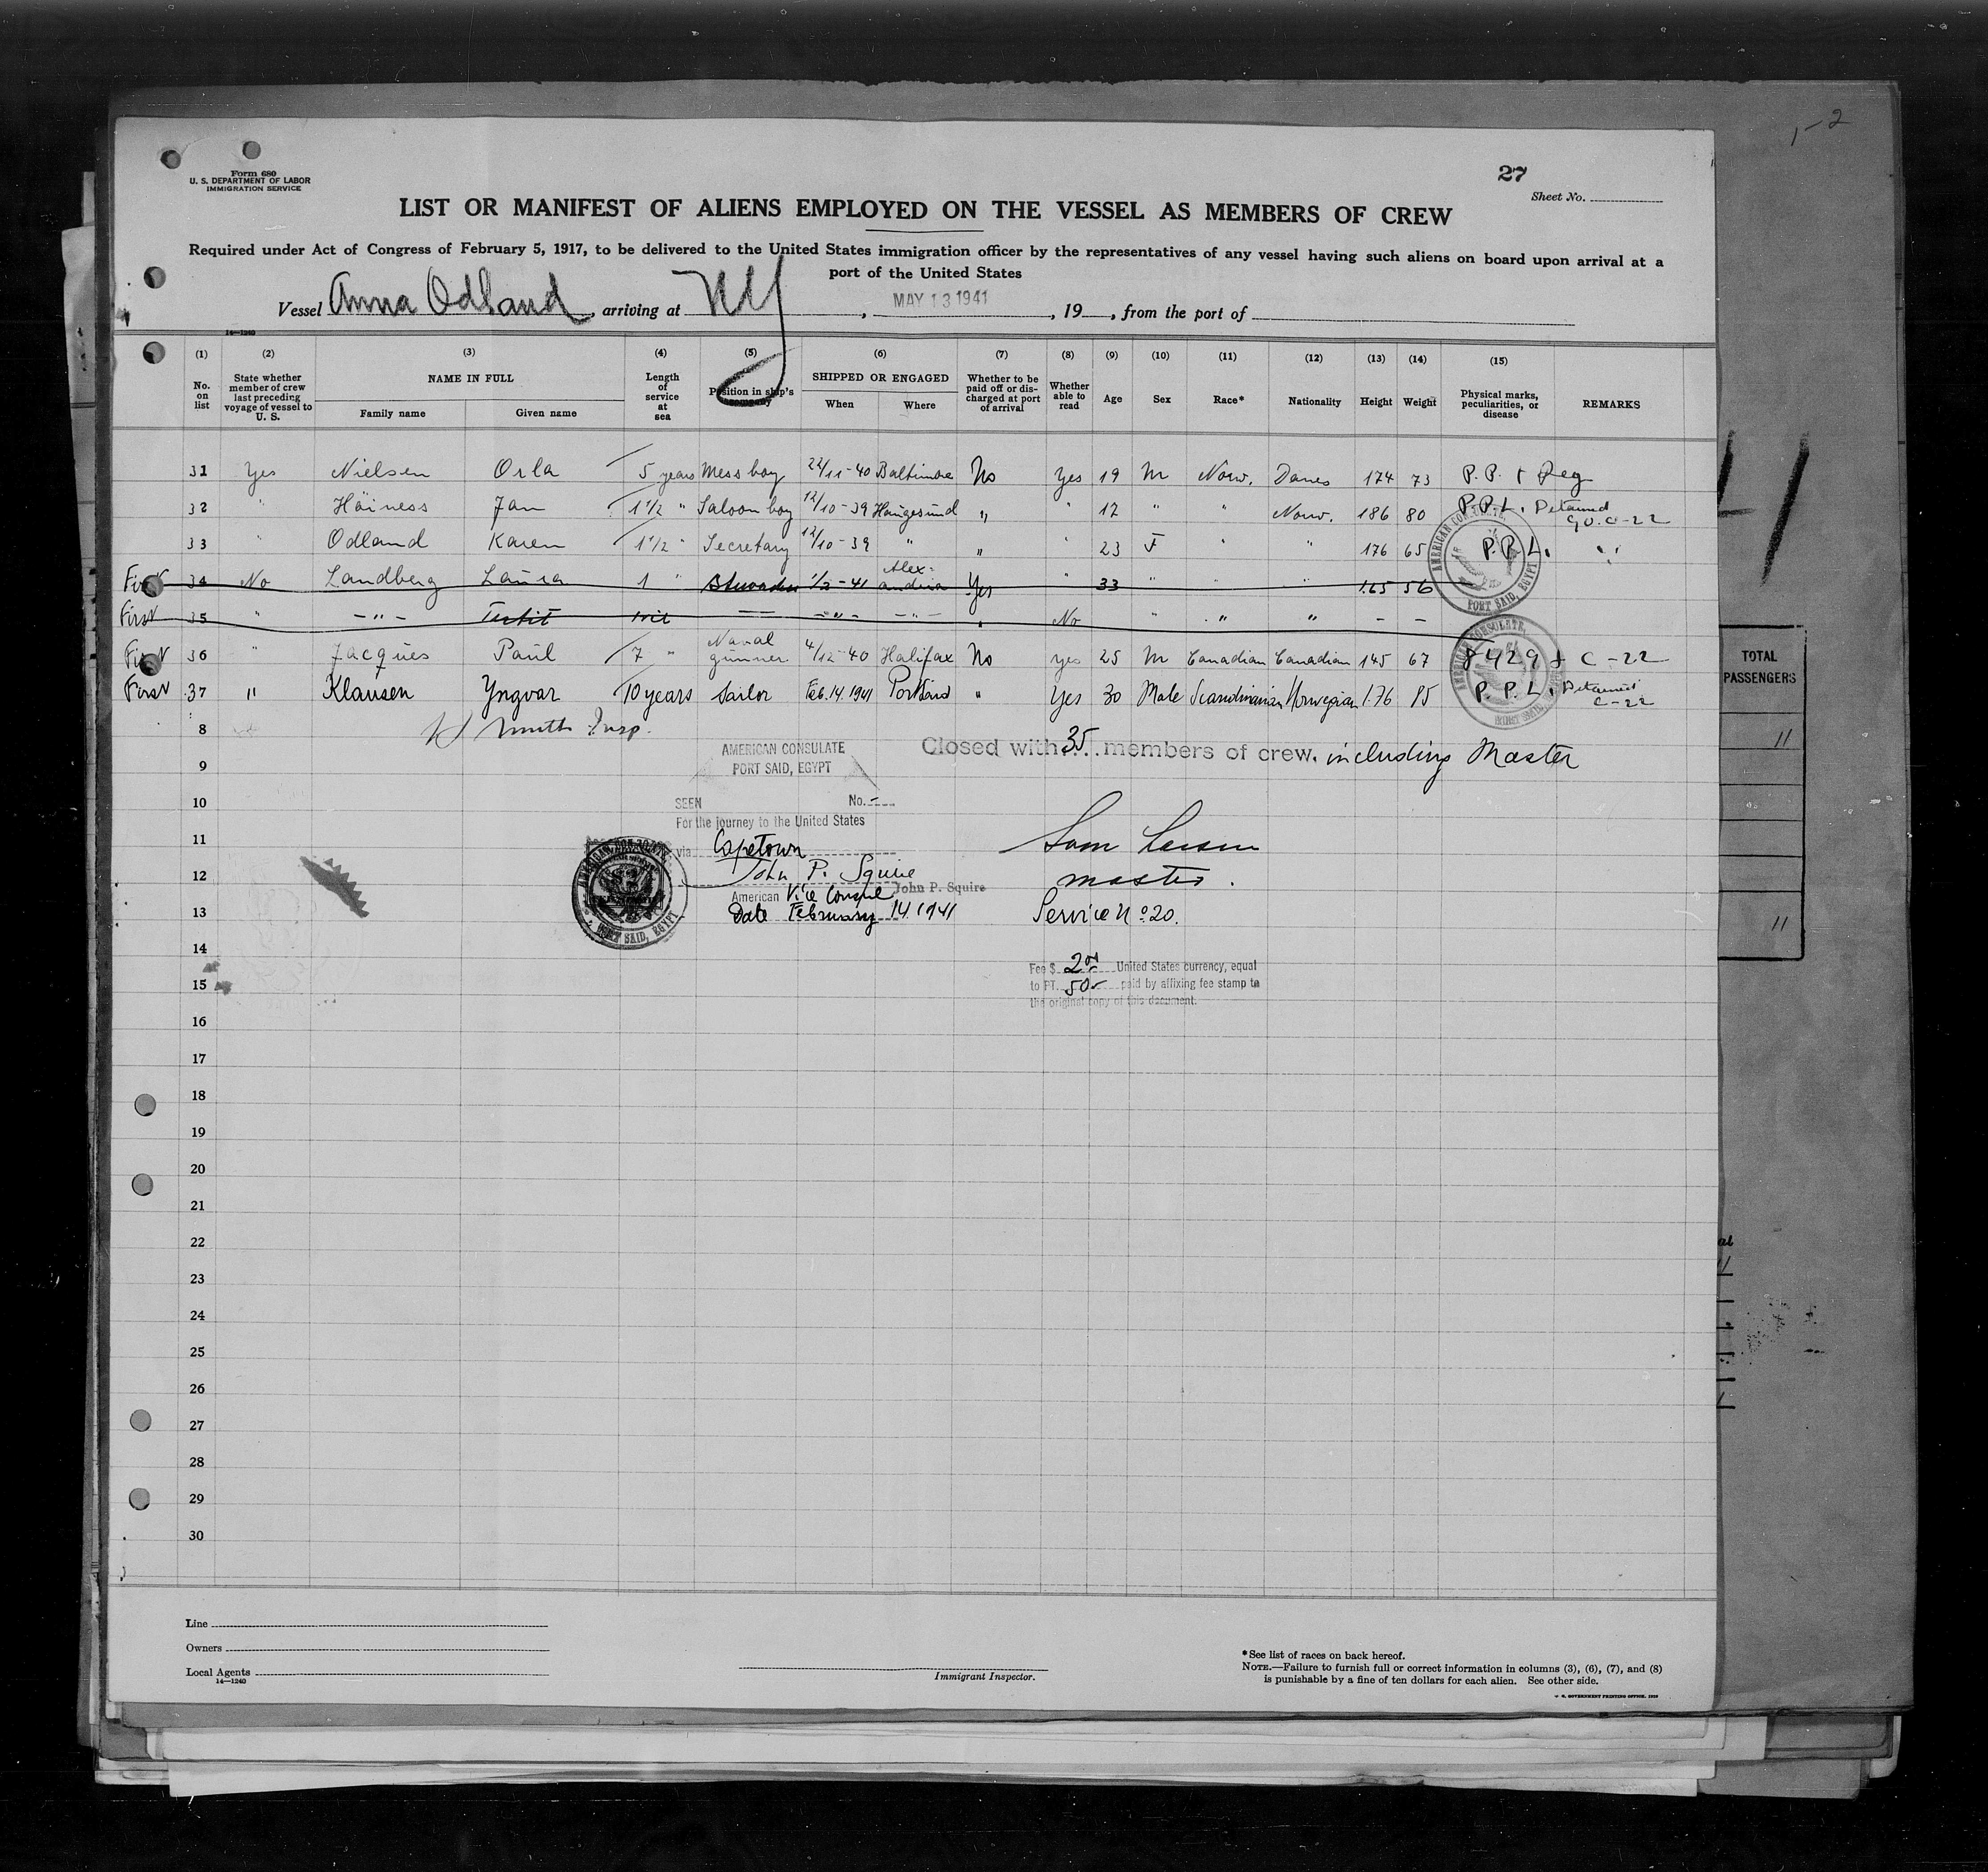 1-2
Form 680
U. S. DEPARTMENT OF LABOR
IMMIGRATION SERVICE
27
Sheet No.
LIST OR MANIFEST OF ALIENS EMPLOYED ON THE VESSEL AS MEMBERS OF CREW
Required under Act of Congress of February 5, 1917, to be delivered to the United States immigration officer by the representatives of any vessel having such aliens on board upon arrival at a
port of the United States
Vessel Anna Odland, arriving at NY, MAY 13 1941, 19 , from the port of
14—1240
(1) (2) (3) (4) (5) (6) (7) (8) (9) (10) (11) (12) (13) (14) (15)
No. on list
State whether member of crew last preceding voyage of vessel to U. S.
NAME IN FULL
Family name Given name
Length of service at sea
Position in ship's company
SHIPPED OR ENGAGED
When Where
Whether to be paid off or discharged at port of arrival
Whether able to read
Age Sex Race* Nationality Height Weight
Physical marks, peculiarities, or disease
REMARKS
31 Yes Nielsen Orla 5 years Mess boy 22/11-40 Baltimore No Yes 19 M Norw. Danes 174 73 P.P. + Reg
32 " Häiness Jan 1 1/2 " Saloon boy 12/10-39 Haugesund " " 17 " " Norw. 186 80 P.P.L. Detained C-22
33 " Odland Karen 1 1/2 " Secretary 12/10-39 " " " 23 F " " 176 65 P.P.L. "
First 34 No Landberg Laura 1 " 1/2-41 Alexandria Yes " 33 " " " 1.65 56
First 35 " -"- -"- -"- " No " " " - -
First 36 " Jacques Paul 7 " Naval gunner 4/12-40 Halifax No yes 25 M Canadian Canadian 145 67 8429 + C-22
First 37 " Klausen Yngvar 10 years Sailor Feb.14.1941 Portsaid " Yes 30 Male Scandinavian Norwegian 1.76 85 P.P.L. Detained C-22
AMERICAN CONSULATE, PORT SAID, EGYPT
AMERICAN CONSULATE,
8 Smith Insp.
Closed with 35 members of crew. including Master
AMERICAN CONSULATE
PORT SAID, EGYPT
9
10 SEEN No. -
For the journey to the United States
11 via Capetown
Sam Larsen
12 John P. Squire
master.
American Vice Consul John P. Squire
13 Date February 14. 1941
Service No 20.
AMERICAN CONSULATE PORT SAID, EGYPT
14
Fee $ 2.00 United States currency, equal
15 to PT. 50- paid by affixing fee stamp to
the original copy of this document.
16
17
18
19
20
21
22
23
24
25
26
27
28
29
30
TOTAL
PASSENGERS
11
11
Line
Owners
Local Agents
14—1240
Immigrant Inspector.
*See list of races on back hereof.
NOTE.—Failure to furnish full or correct information in columns (3), (6), (7), and (8)
is punishable by a fine of ten dollars for each alien. See other side.
U. S. GOVERNMENT PRINTING OFFICE